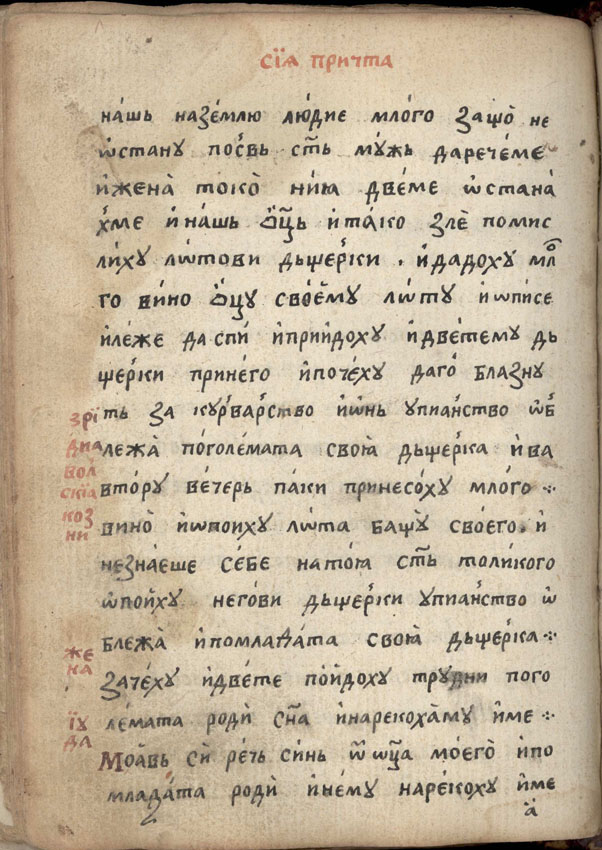 сїѧ причта
на́шь назе́млю лю́дие мло́го защо̀ не
ѡ҆стану посвь сть мꙋ́жь даречеме
и҆жена̀ токо̀ ниꙗ две́ме ѡ҆стана
хме и҆на́шь ѻц҃ь и҆та́ко злѐ помис
лиху лѡ́тови дьще́рки . и҆дадоху мло
го ви́но ѻц҃у свое́му лѡ́ту и҆ѡписе
и҆ле́же да спи́ и҆прии́доху и҆две́тему дь
щерки прине́го и҆поче́ху даго̀ блазну
ть за ку́рварство и҆ѡ́нь упиа́нство ѡ҆б
лежа̀ по́голе́мата своꙗ̀ дьще́рка и҆ва
вто́ру ве́черь па́ки принесо́ху мло́го ⁘
вино̀ и҆ѡпоиху лѡ́та ба́щу своего . и҆
незна́еше се́бе ната́ꙗ сть толи́кого
ѡ҆пои́ху не́гови дьще́рки упиа́нство ѡ҆
блежа̀ и҆помлада́та своꙗ̀ дьще́рка ⁘
зачеху и҆две́те пои́доху тру́дни пого
ле́мата родѝ сн҃а и҆нарекоха́му и́ме ⁘
Моа́вь сѝ ре́чь си́нь ѿ ѡц҃а мое́го и҆по
млада́та родѝ и҆не́му наре́коху и́ме
а҃
зрї
диа
вол
скїа
коз
ни
же
на
їу
да